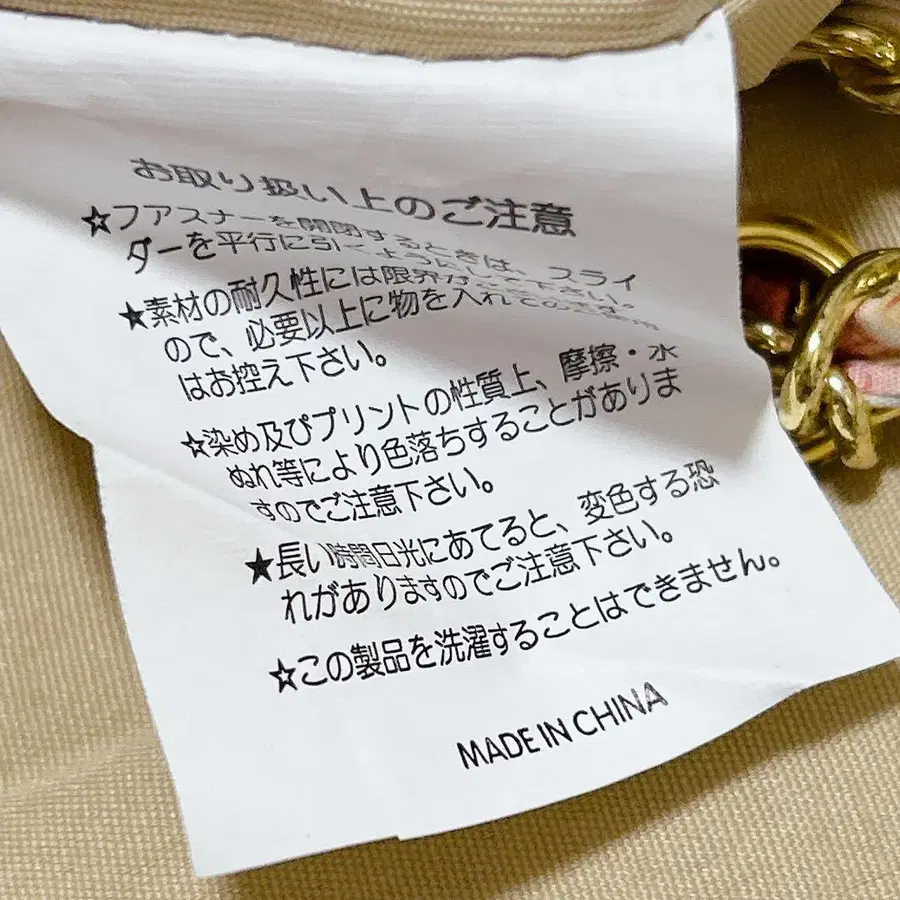 お取り扱い上のご注意
☆フアスナーを開閉するときは、スライ
ダーを平行に引くようにして下さい。
★素材の耐久性には限界が
ので、必要以上に物を入れての
はお控え下さい。
☆染め及びプリントの性質上、摩擦・水
ぬれ等により色落ちすることがありま
すのでご注意下さい。
★長い時間日光にあてると、変色する恐
れがありますのでご注意下さい。
☆この製品を洗濯することはできません。
MADE IN CHINA